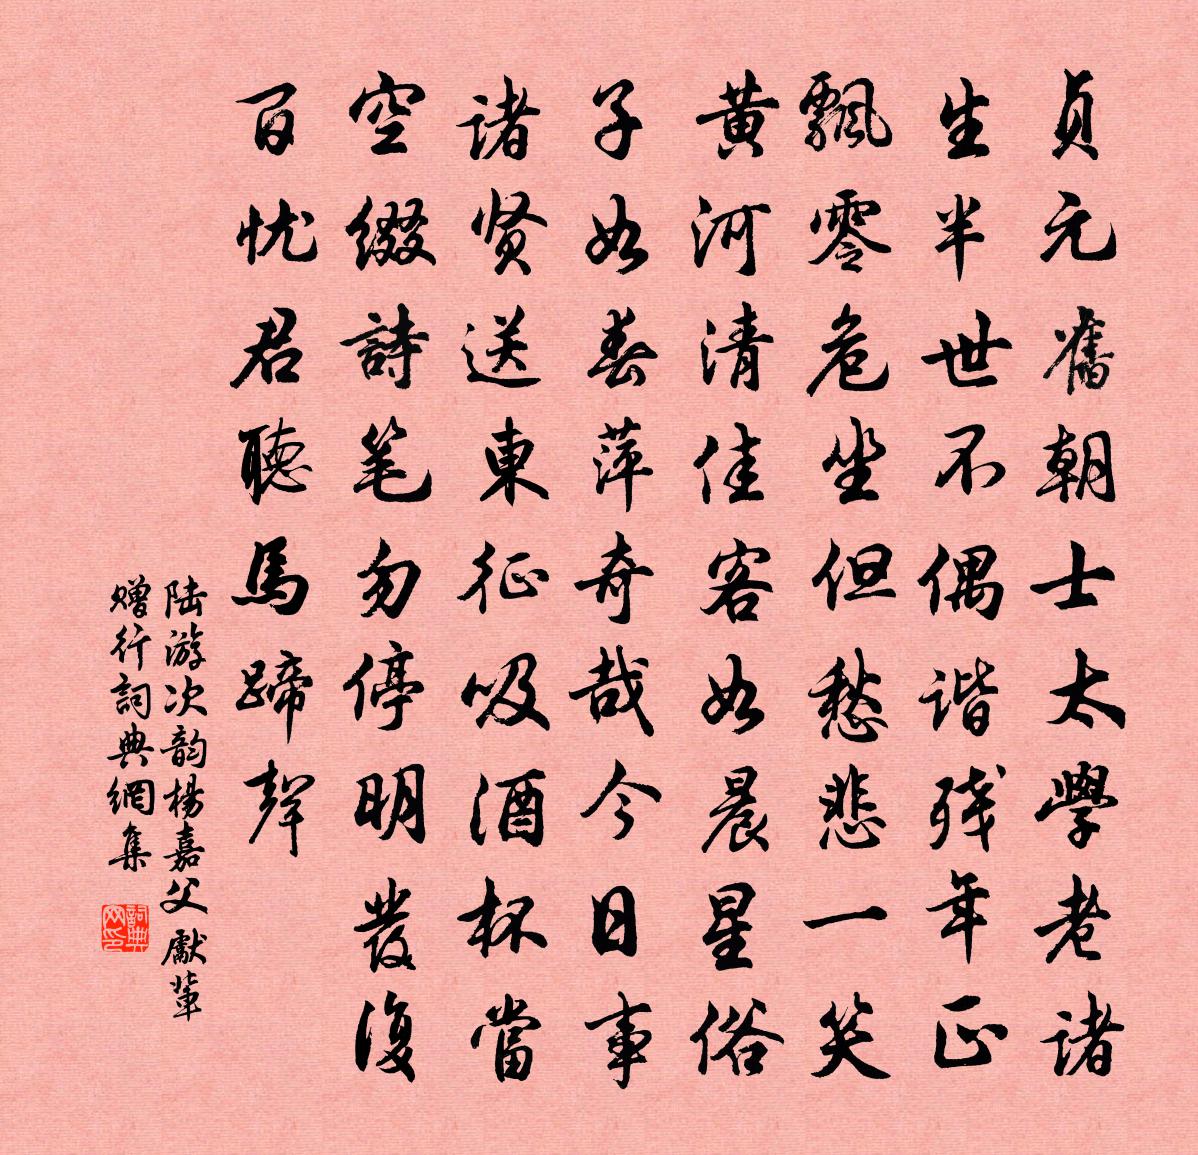 贞元舊朝士太學老诸
生半世不偶谐残年正
飄零危坐但愁悲一笑
黄河清佳客如晨星俗
子如春萍奇哉今日事
诸贤送東征吸酒杯當
空缀詩笔勿停明發復
百忧君聽馬蹄聲
陆游次韵杨嘉父 獻辈
赠行詞典網集
詞典网印